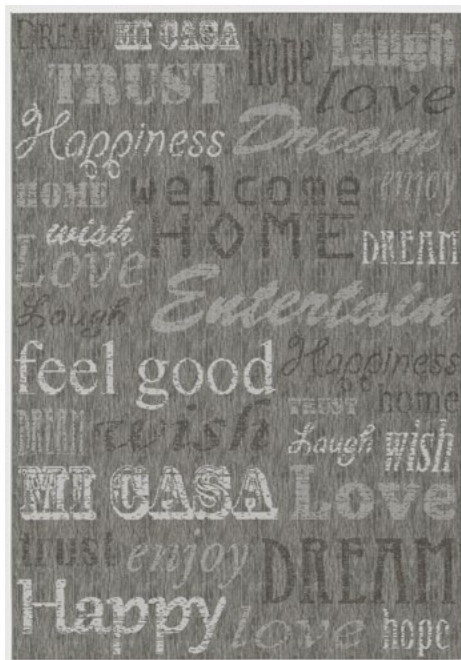 DREAM MI CASA hope Laugh
TRUST love
Happiness Dream
HOME welcome enjoy
wish HOME DREAM
Love Entertain
Laugh Happiness
feel good home
TRUST
DREAM wish Laugh wish
MI CASA Love
trust enjoy DREAM
Happy love hope